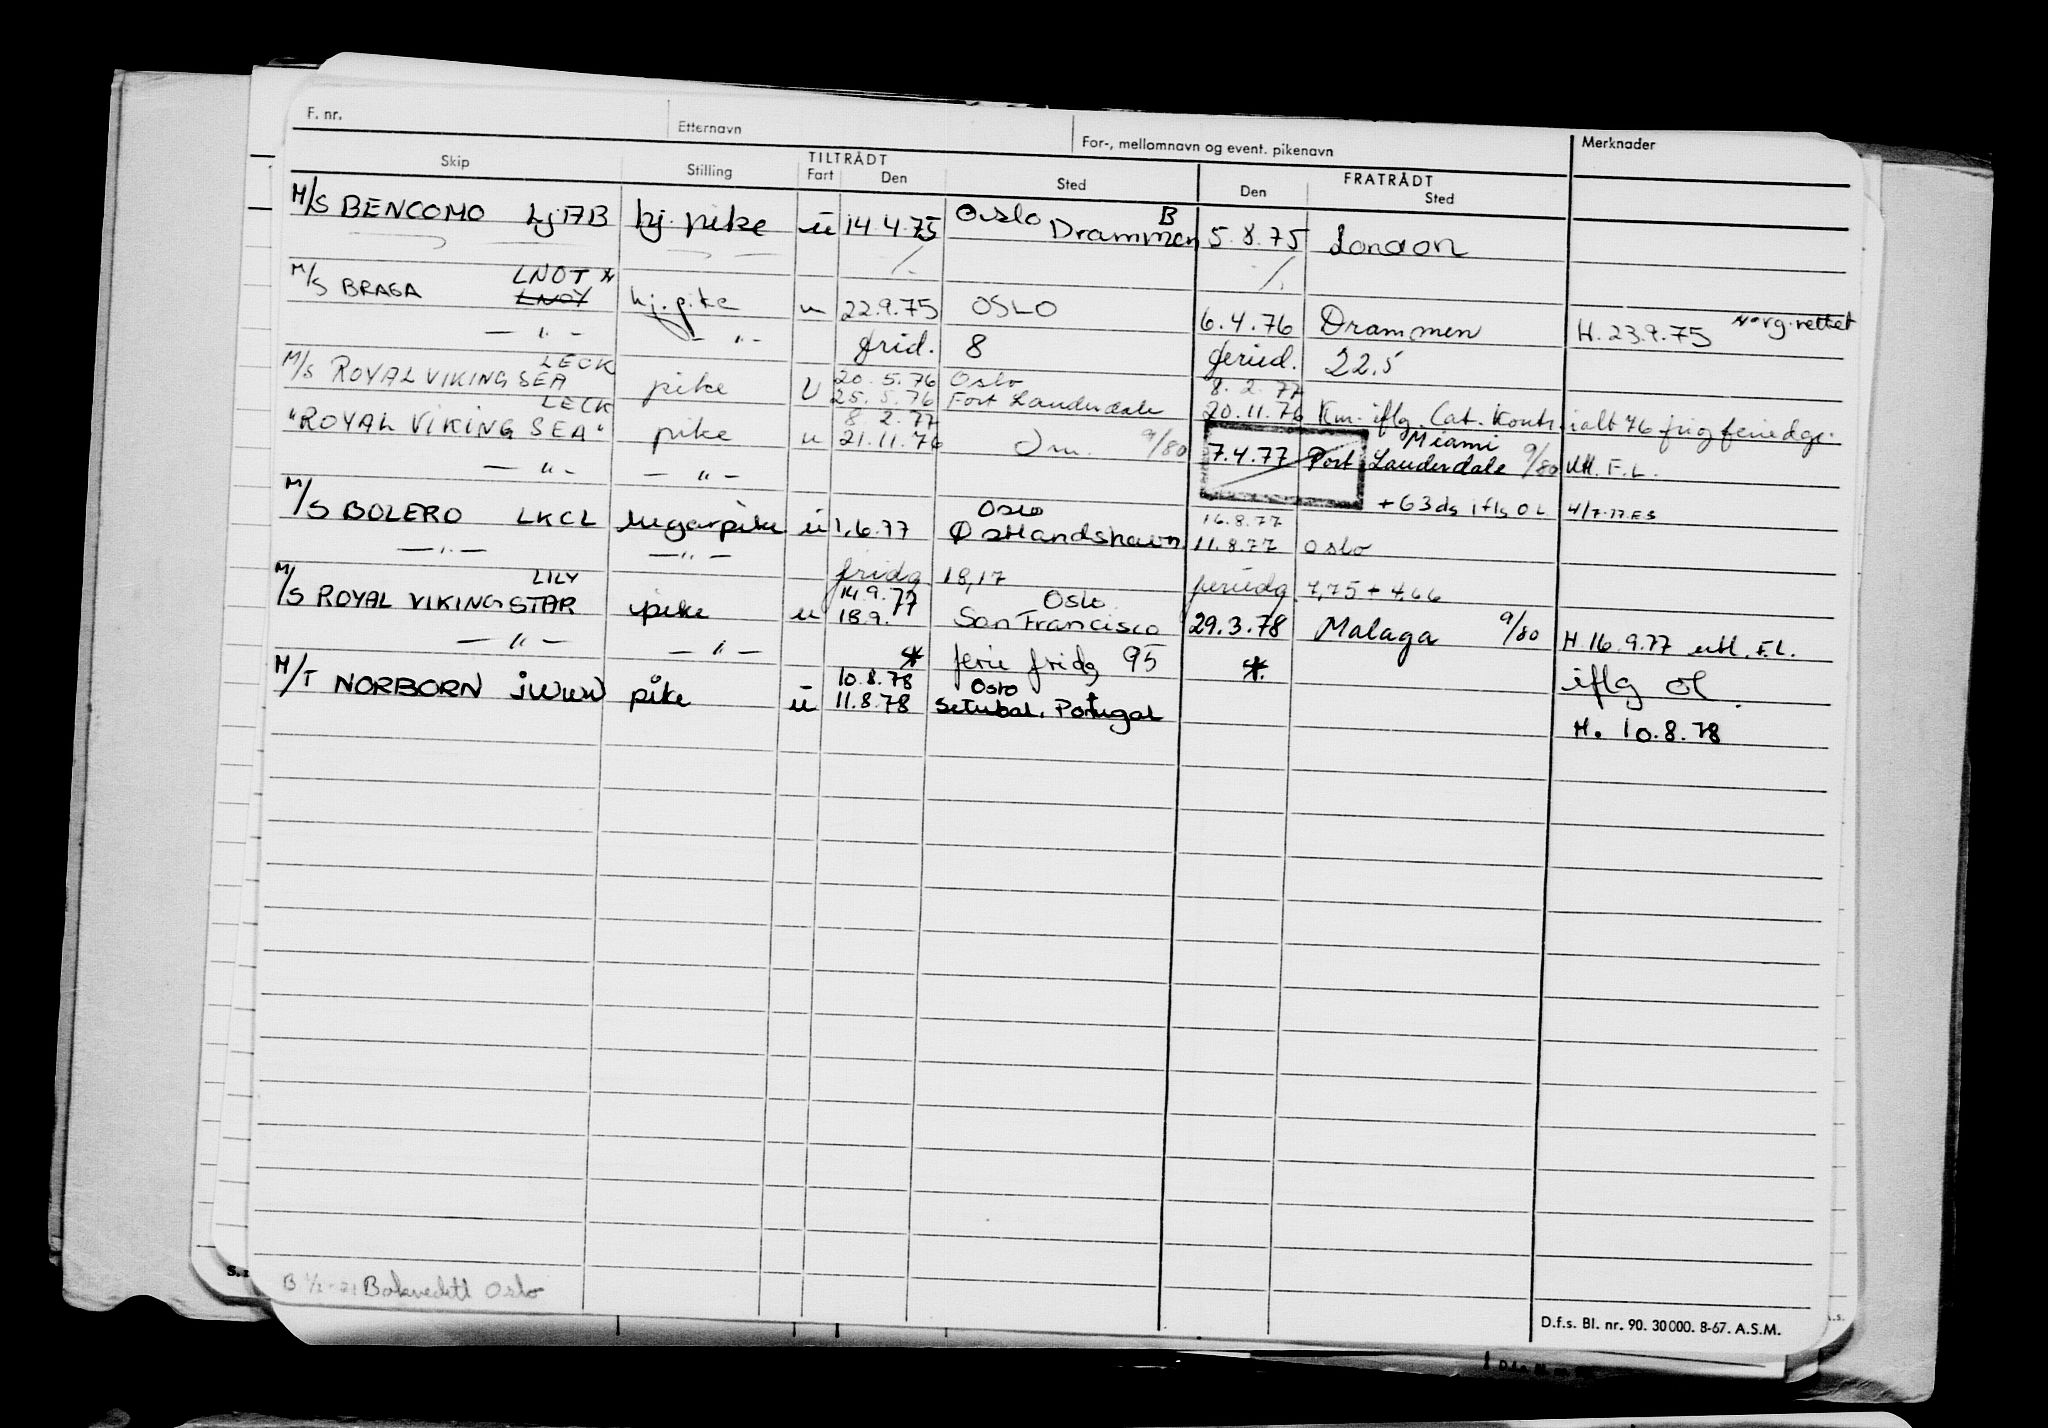 F. nr. Etternavn For-, mellomnavn og event. pikenavn Merknader
Skip Stilling TILTRÅDT Fart Den Sted FRATRÅDT Den Sted
M/S BENCOMO LJTB hj. pike u 14.4.75 Oslo B Drammen 5.8.75 London
M/S BRAGA LNOT * LNOY hj. pike u 22.9.75 OSLO 6.4.76 Drammen H. 23.9.75 * vg. rettet
— " — — " — frid. 8 feried. 22.5
M/S ROYAL VIKING SEA LECK pike U 20.5.76 Oslo 8.2.77
25.5.76 Fort Lauderdale 20.11.76 Km. iflg. Cat. Kontr. ialt 76 frig feriedge.
"ROYAL VIKING SEA" LECK pike u 8.2.77 21.11.76 Om. 9/80 7.4.77 Miami Port Lauderdale 9/80 Utl. F.L.
— " — — " — + 63 ds iflg OL 4/7-77 ES
M/S BOLERO LKCL lugarpike u 1.6.77 Oslo Østlandshavn 16.8.77
— " — — " — 11.8.77 Oslo
fridg 18,17 feriedg. 7,75 + 4,66
M/S ROYAL VIKING STAR LILY pike u 14.9.77 Oslo
18.9. San Francisco 29.3.78 Malaga 9/80 H 16.9.77 utl. F.L.
— " — — " — * ferie fridg 95 * iflg OL.
M/T NORBORN JWWW pike u 10.8.78 Oslo
11.8.78 Setubal, Portugal H. 10.8.78
Bokvedtl Oslo
D.f.s. Bl. nr. 90. 30000. 8-67. A.S.M.